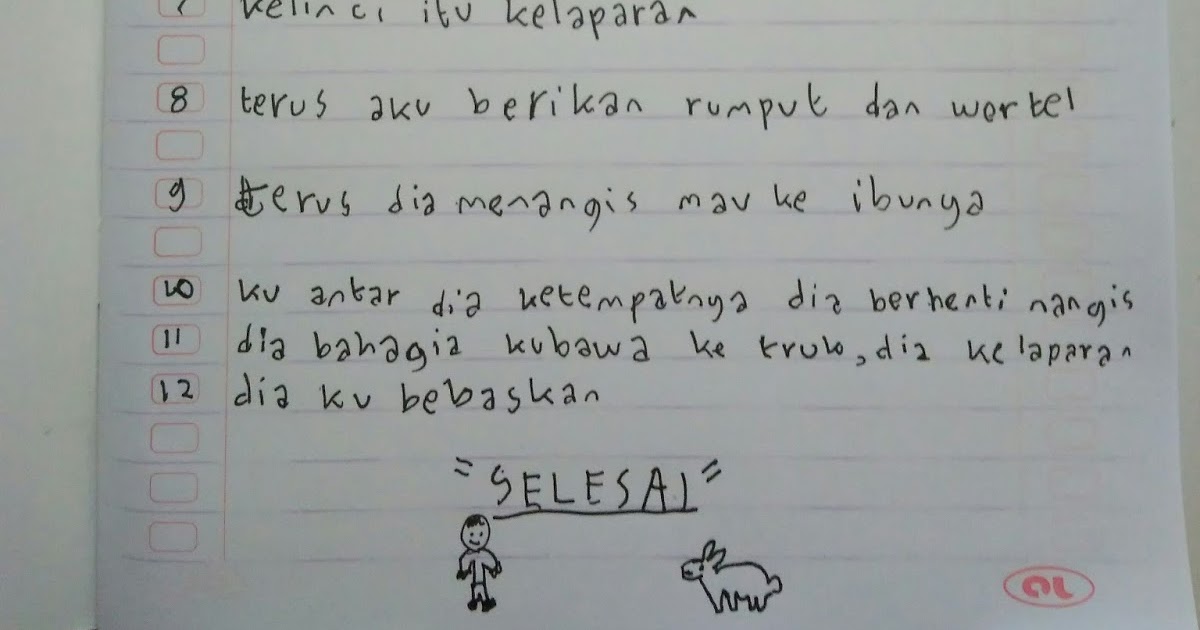 7 kelinci itu kelaparan
8 terus aku berikan rumput dan wortel
9 terus dia menangis mau ke ibunya
10 ku antar dia ketempatnya dia berhenti nangis
11 dia bahagia kubawa ke truk, dia kelaparan
12 dia ku bebaskan
"SELESAI"